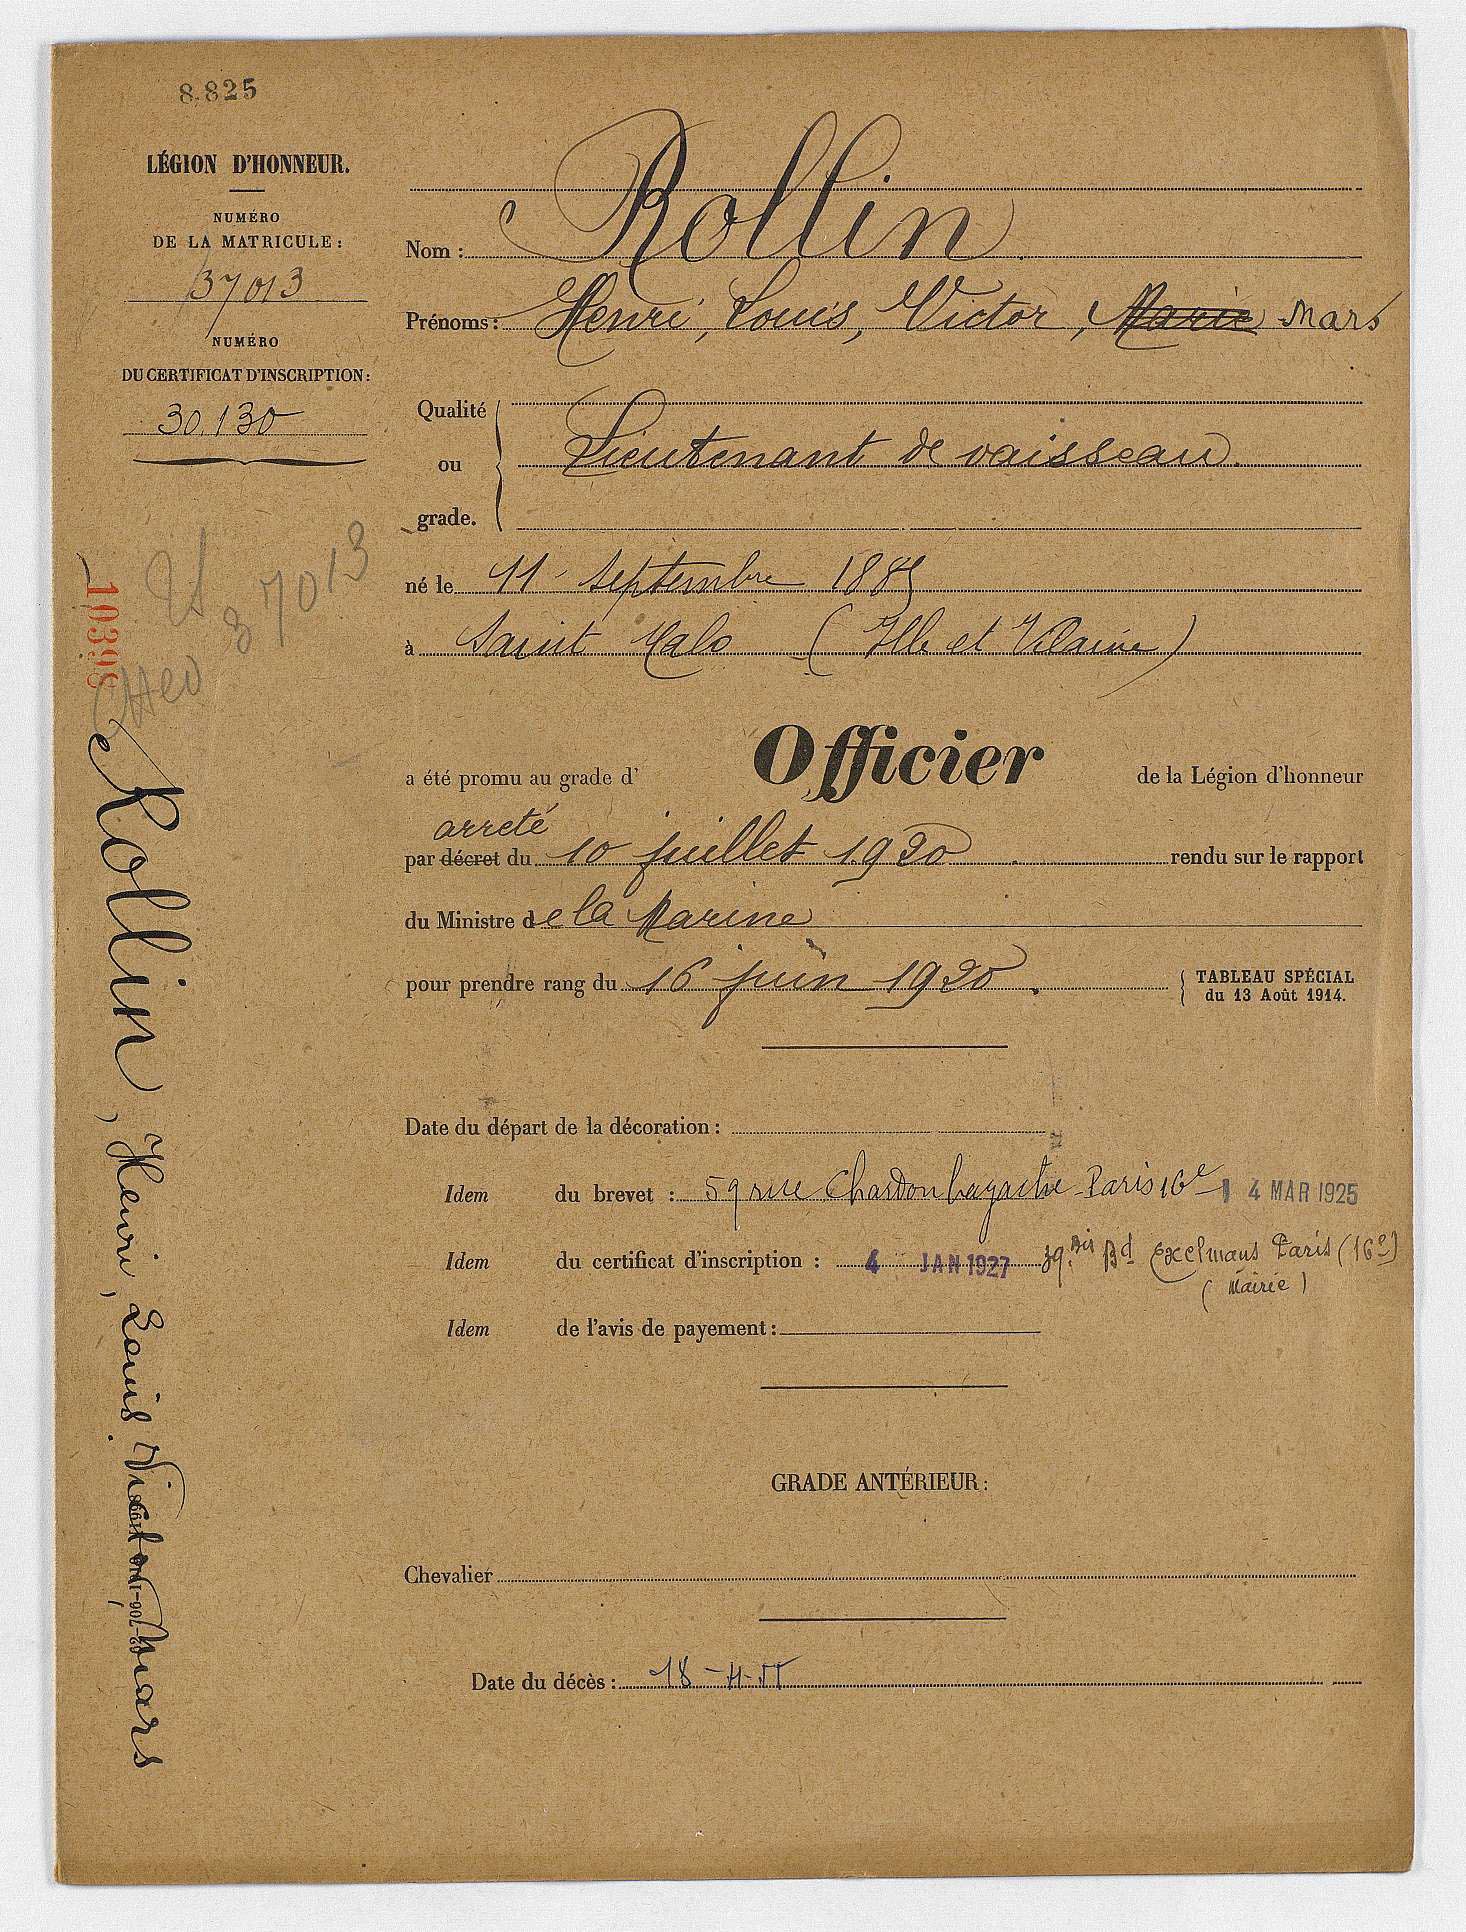 8.825
LÉGION D'HONNEUR.
NUMÉRO
DE LA MATRICULE:
37013
NUMÉRO
DU CERTIFICAT D'INSCRIPTION:
30.130
37013
10398
Rollin, Henri, Louis, Victor, Mars
Nom : Rollin
Prénoms: Henri, Louis, Victor, Marie Mars
Qualité
ou
grade.
Lieutenant de vaisseau.
né le 11 septembre 1885
à Saint Malo (Ille et Vilaine)
a été promu au grade d' Officier de la Légion d'honneur
arreté
par décret du 10 juillet 1920 rendu sur le rapport
du Ministre de la Marine
pour prendre rang du 16 juin 1920. TABLEAU SPÉCIAL
du 13 Août 1914.
Date du départ de la décoration :
Idem du brevet : 59 rue Chardon Lagache Paris 16e 4 MAR 1925
Idem du certificat d'inscription : 4 JAN 1927 39 bis Bd Exelmans Paris (16e)
(Mairie)
Idem de l'avis de payement :
GRADE ANTÉRIEUR :
Chevalier
Date du décès : 18-4-55